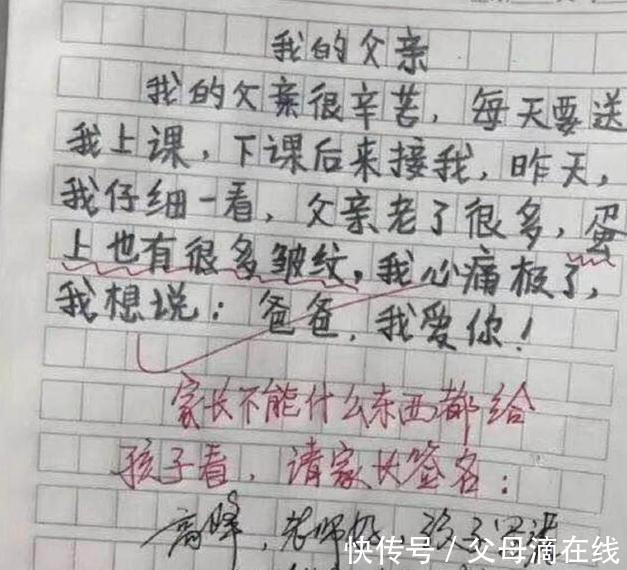 我的父亲
我的父亲很辛苦，每天要送
我上课，下课后来接我，昨天，
我仔细一看，父亲老了很多，蛋
上也有很多皱纹，我心痛极了，
我想说：爸爸，我爱你！
家长不能什么东西都给
孩子看，请家长签名：
高峰，老师好，孩子写错
快传号/父母滴在线